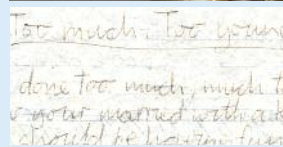 Too much. Too young
done too much, much t
your married with a k
should be having fun